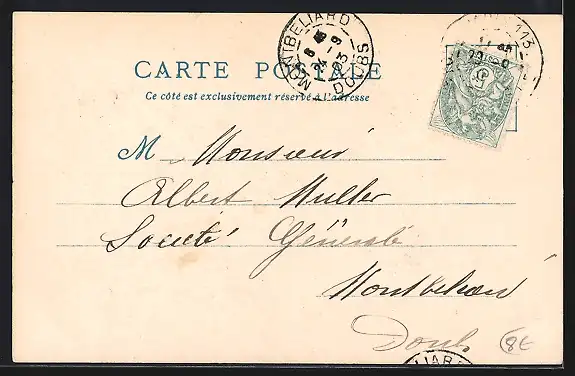 MONTBELIARD
8 45
24 -9
03
DOUBS
113
CARTE POSTALE
Ce côté est exclusivement réservé à l'adresse
M Monsieur
Albert Muller
Société Générale
Montbéliard
Doubs
8€
LIARD